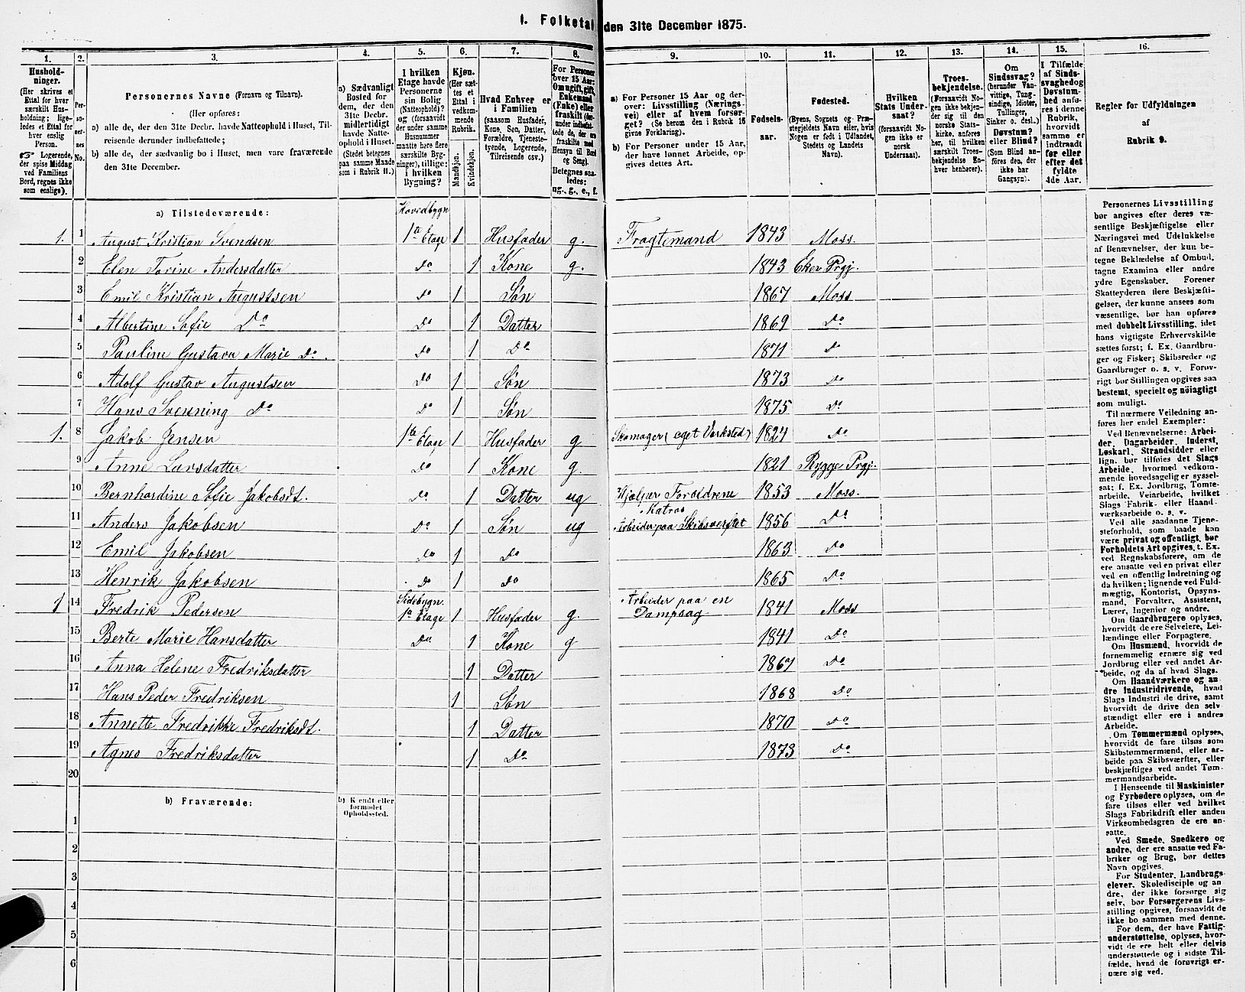 I. Folketal den 31te December 1875.
1.
Hushold-
ninger.
(Her skrives et
Ettal for hver
særskilt Hus-
holdning; lige-
ledes et Ettal for
hver enslig
Person.
Logerende,
der spise Middag
ved Familiens
Bord, regnes ikke
som enslige).
2.
Per-
so-
ner-
nes
No.
3.
Personernes Navne (Fornavn og Tilnavn).
(Her opføres:
a) alle de, der den 31te Decbr. havde Natteophold i Huset, Til-
reisende derunder indbefattede;
b) alle de, der sædvanlig bo i Huset, men vare fraværende
den 31te December.
4.
a) Sædvanligt
Bosted for
dem, der den
31te Decbr.
midlertidigt
havde Natte-
ophold i Huset.
(Stedet betegnes
paa samme Maade
som i Rubrik 11.)
5.
I hvilken
Etage havde
Personerne
sin Bolig
(Natteophold)?
og (forsaavidt
der under samme
Husnummer
matte høre flere
særskilte Byg-
ninger), tillige:
i hvilken
Bygning?
6.
Kjøn.
(Her sæt-
tes et
Ettal i
vedkom-
mende
Rubrik.
Mandkjøn.
Kvindekjøn.
7.
Hvad Enhver er
i Familien
(saasom Husfader,
Kone, Søn, Datter,
Forældre, Tjeneste-
tyende, Logerende,
Tilreisende osv.)
8.
For Personer
over 15 Aar:
Om ugift, gift,
Enkemand
(Enke) eller
fraskilt
Betegnes saa-
ledes:
ug., g., e., f.
9.
a) For Personer 15 Aar og der-
over: Livsstilling (Nærings-
vei) eller af hvem forsør-
get? (Se herom den i Rubrik 16
givne Forklaring).
b) For Personer under 15 Aar,
der have lønnet Arbeide, op-
gives dettes Art.
10.
Fødsels-
aar.
11.
Fødested.
(Byens, Sognets og Præ-
stegjeldets Navn eller, hvis
Nogen er født i Udlandet,
Stedets og Landets
Navn).
12.
Hvilken
Stats Under-
saat?
(forsaavidt No-
gen ikke er
norsk
Undersaat).
13.
Troes-
bekjendelse.
(Forsaavidt No-
gen ikke bekjen-
der sig til den
norske Stats-
kirke, anfø-
rer, til hvilken
særskilt Troes-
bekjendelse En-
hver henhører).
14.
Om
Sindssvag?
(herunder Van-
vittige, Tung-
sindige, Idioter,
Tullinger,
Sinker o. desl.)
Døvstum?
eller Blind?
(Som Blind an-
føres den, der
ikke har
Gangsyn).
15.
I Tilfælde
af Sinds-
svaghed og
Døvstum-
hed anfø-
res i denne
Rubrik,
hvorvidt
samme er
indtraadt
før eller
efter det
fyldte
4de Aar.
16.
Regler for Udfyldningen
af
Rubrik 9.
a) Tilstedeværende: Hovedbygn
1. 1 August Kristian Svendsen 1ste Etage 1 Husfader g. Fragtemand 1843 Moss.
2 Elen Torine Andersdatter Do 1 Kone g. 1843 Eker Prgj.
3 Emil Kristian Augustsen Do 1 Søn 1867 Moss
4 Albertine Sofie Do Do 1 Datter 1869 Do
5 Pauline Gustava Marie Do. Do 1 Do 1871 Do
6 Adolf Gustav Augustsen Do 1 Søn 1873 Do
7 Hans Svenning Do Do 1 Søn 1875 Do
1. 8 Jakob Jensen 1ste Etage 1 Husfader g Skomager (eget Værksted) 1827 Do
9 Anne Larsdatter Do 1 Kone g. 1821 Rygge Prgj.
10 Bernhardine Sofie Jakobsdt. Do 1 Datter ug Hjælper Forældrene 1853 Moss.
11 Anders Jakobsen Do 1 Søn ug Matros
Arbeider paa Skibsverftet 1856 Do
12 Emil Jakobsen Do 1 Do 1863 Do
13 Henrik Jakobsen Do 1 Do 1865 Do
1 14 Fredrik Pedersen Sidebygn. 1ste Etage 1 Husfader g. Arbeider paa en
Dampsag 1841 Moss
15 Berte Marie Hansdatter Do 1 Kone g 1841 Do
16 Anna Helene Fredriksdatter 1 Datter 1867 Do
17 Hans Peder Fredriksen 1 Søn 1868 Do
18 Annette Fredrikke Fredriksdt. 1 Datter 1870 Do
19 Agnes Fredriksdatter 1 Do 1873 Do
20
b) Fraværende: b) Kjendt eller
formodet
Opholdssted.
1
2
3
4
5
6
Personernes Livsstilling
bør angives efter deres væ-
sentlige Beskjæftigelse eller
Næringsvei med Udelukkelse
af Benævnelser, der kun be-
tegne Beklædelse af Ombud,
tagne Examina eller andre
ydre Egenskaber. Forener
Skatteyderen flere Beskjæfti-
gelser, der kunne ansees som
væsentlige, bør han opføres
med dobbelt Livsstilling, idet
hans vigtigste Erhvervskilde
sættes først; f. Ex. Gaardbru-
ger og Fisker; Skibsreder og
Gaardbruger o. s. v. Forøv-
rigt bør Stillingen opgives saa
bestemt, specielt og nøiagtigt
som muligt.
Til nærmere Veiledning an-
føres her endel Exempler:
Ved Benævnelserne: Arbei-
der, Dagarbeider, Inderst,
Løskarl, Strandsidder eller
lign. bør tilføies det Slags
Arbeide, hvormed vedkom-
mende hovedsagelig er syssel-
sat; f. Ex. Jordbrug, Tomte-
arbeide, Veiarbeide, hvilket
Slags Fabrik- eller Haand-
værksarbeide o. s. v.
Ved alle saadanne Tjene-
steforhold, som baade kan
være privat og offentligt, bør
Forholdets Art opgives, t. Ex.
ved Regnskabsførere, om de
ere ansatte ved en privat eller
ved en offentlig Indretning og
da hvilken; lignende ved Fuld-
mægtig, Kontorist, Opsyns-
mand, Forvalter, Assistent,
Lærer, Ingeniør og andre.
Om Gaardbrugere oplyses,
hvorvidt de ere Selveiere, Lei-
lændinge eller Forpagtere.
Om Husmænd, hvorvidt de
fornemmelig ernære sig ved
Jordbrug eller ved andet Ar-
beide, og da af hvad Slags.
Om Haandværkere og an-
dre Industridrivende, hvad
Slags Industri de drive, samt
hvorvidt de drive den selv-
stændigt eller ere i andres
Arbeide.
Om Tømmermænd oplyses,
hvorvidt de fare tilsøs som
Skibstømmermænd, eller ar-
beide paa Skibsværfter, eller
beskjæftiges ved andet Tøm-
mermandsarbeide.
I Henseende til Maskinister
og Fyrbødere oplyses, om de
fare tilsøs eller ved hvilket
Slags Fabrikdrift eller anden
Virksomhedsgren de ere an-
satte.
Ved Smede, Snedkere og
andre, der ere ansatte ved Fa-
briker og Brug, bør dettes
Navn opgives.
For Studenter, Landbrugs-
elever, Skoledisciple og an-
dre, der ikke forsørge sig
selv, bør Forsørgerens Livs-
stilling opgives, forsaavidt de
ikke bo sammen med denne.
For dem, der have Fattig-
understøttelse, oplyses, hvor-
vidt de ere helt eller delvis
understøttede og i sidste Til-
fælde, hvad de forøvrigt er-
nære sig ved.